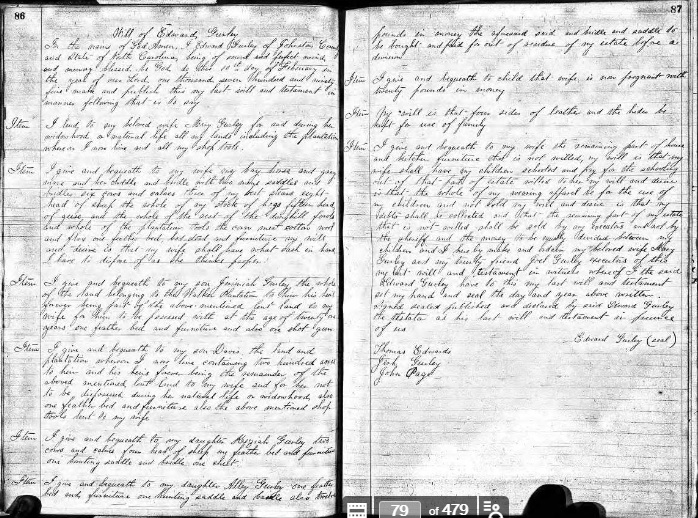 86
Will of Edward Gurley
In the name of God Amen. I Edward Gurley of Johnston County
and State of North Carolina being of sound and perfect mind
and memory blessed be God do this 10th day of February in
the year of our Lord one thousand seven hundred and ninety
five make and publish this my last will and testament in
manner following that is to say
Item I lend to my beloved wife Mary Gurley for and during her
widowhood or natural life all my lands including the plantation
whereon I now live and all my shop tools.
Item I give and bequeath to my wife one bay horse and gray
mare and her saddle and bridle
bridles six cows and calves
head of sheep the whole of my stock of hogs fifteen head
of geese and the whole of the rest of the dunghill fowls
and whole of the plantation tools the corn meat cotton wool
and flax one feather bed, bedstead and furniture my will
and desire is that my wife shall have what cash in hand
to dispose of as she thinks proper.
Item I give and bequeath to my son Jeremiah Gurley the whole
of the land belonging to the Walker Plantation to him his heirs
forever being part of the above mentioned lent land to my
wife for him to be possessed with at the age of twenty one
years one feather bed and furniture and also one shot gun.
Item I give and bequeath to my son Davis the land and
plantation whereon I now live containing two hundred acres
to him and his heirs forever being the remainder of the
above mentioned lent land to my wife and for her not
to be dispossessed during her natural life or widowhood, also
one feather bed and furniture also the above mentioned shop
tools lent to my wife
Item I give and bequeath to my daughter Keziah Gurley two
cows and calves four head of sheep one feather bed and furniture
one hunting saddle and bridle one chest.
Item I give and bequeath to my daughter Alley Gurley one feather
bed and furniture one hunting saddle and bridle also
87
pounds in money the aforesaid said and bridle and saddle to
be bought and paid for out of residue of my estate before a
division
Item I give and bequeath to child that wife is now pregnant with
twenty pounds in money
Item My will is that four sides of leather and the hides be
kept for use of family
Item I give and bequeath to my wife the remaining part of house
and kitchen furniture that is not willed, my will is that my
wife shall have my children schooled and pay for the schooling
out of that part of estate willed to her my will and desire
is that the whole of my wearing apparel be for the use of
my children and not sold my will and desire is that my
debts shall be collected and that the remaining part of my estate
that is not willed shall be sold by my executors and
and the money to be equally divided between my
children and I
Gurley and my trusty friend Joel Gurley executors of this
my last will and testament in witness whereof I the said
Edward Gurley have to this my last will and testament
set my hand and seal the day and year above written.
signed sealed published and declared by said Edward Gurley
the testator as his last will and testament in presence
of us
Edward Gurley (seal)
Thomas Edwards
Gurley
John Page
79 of 479